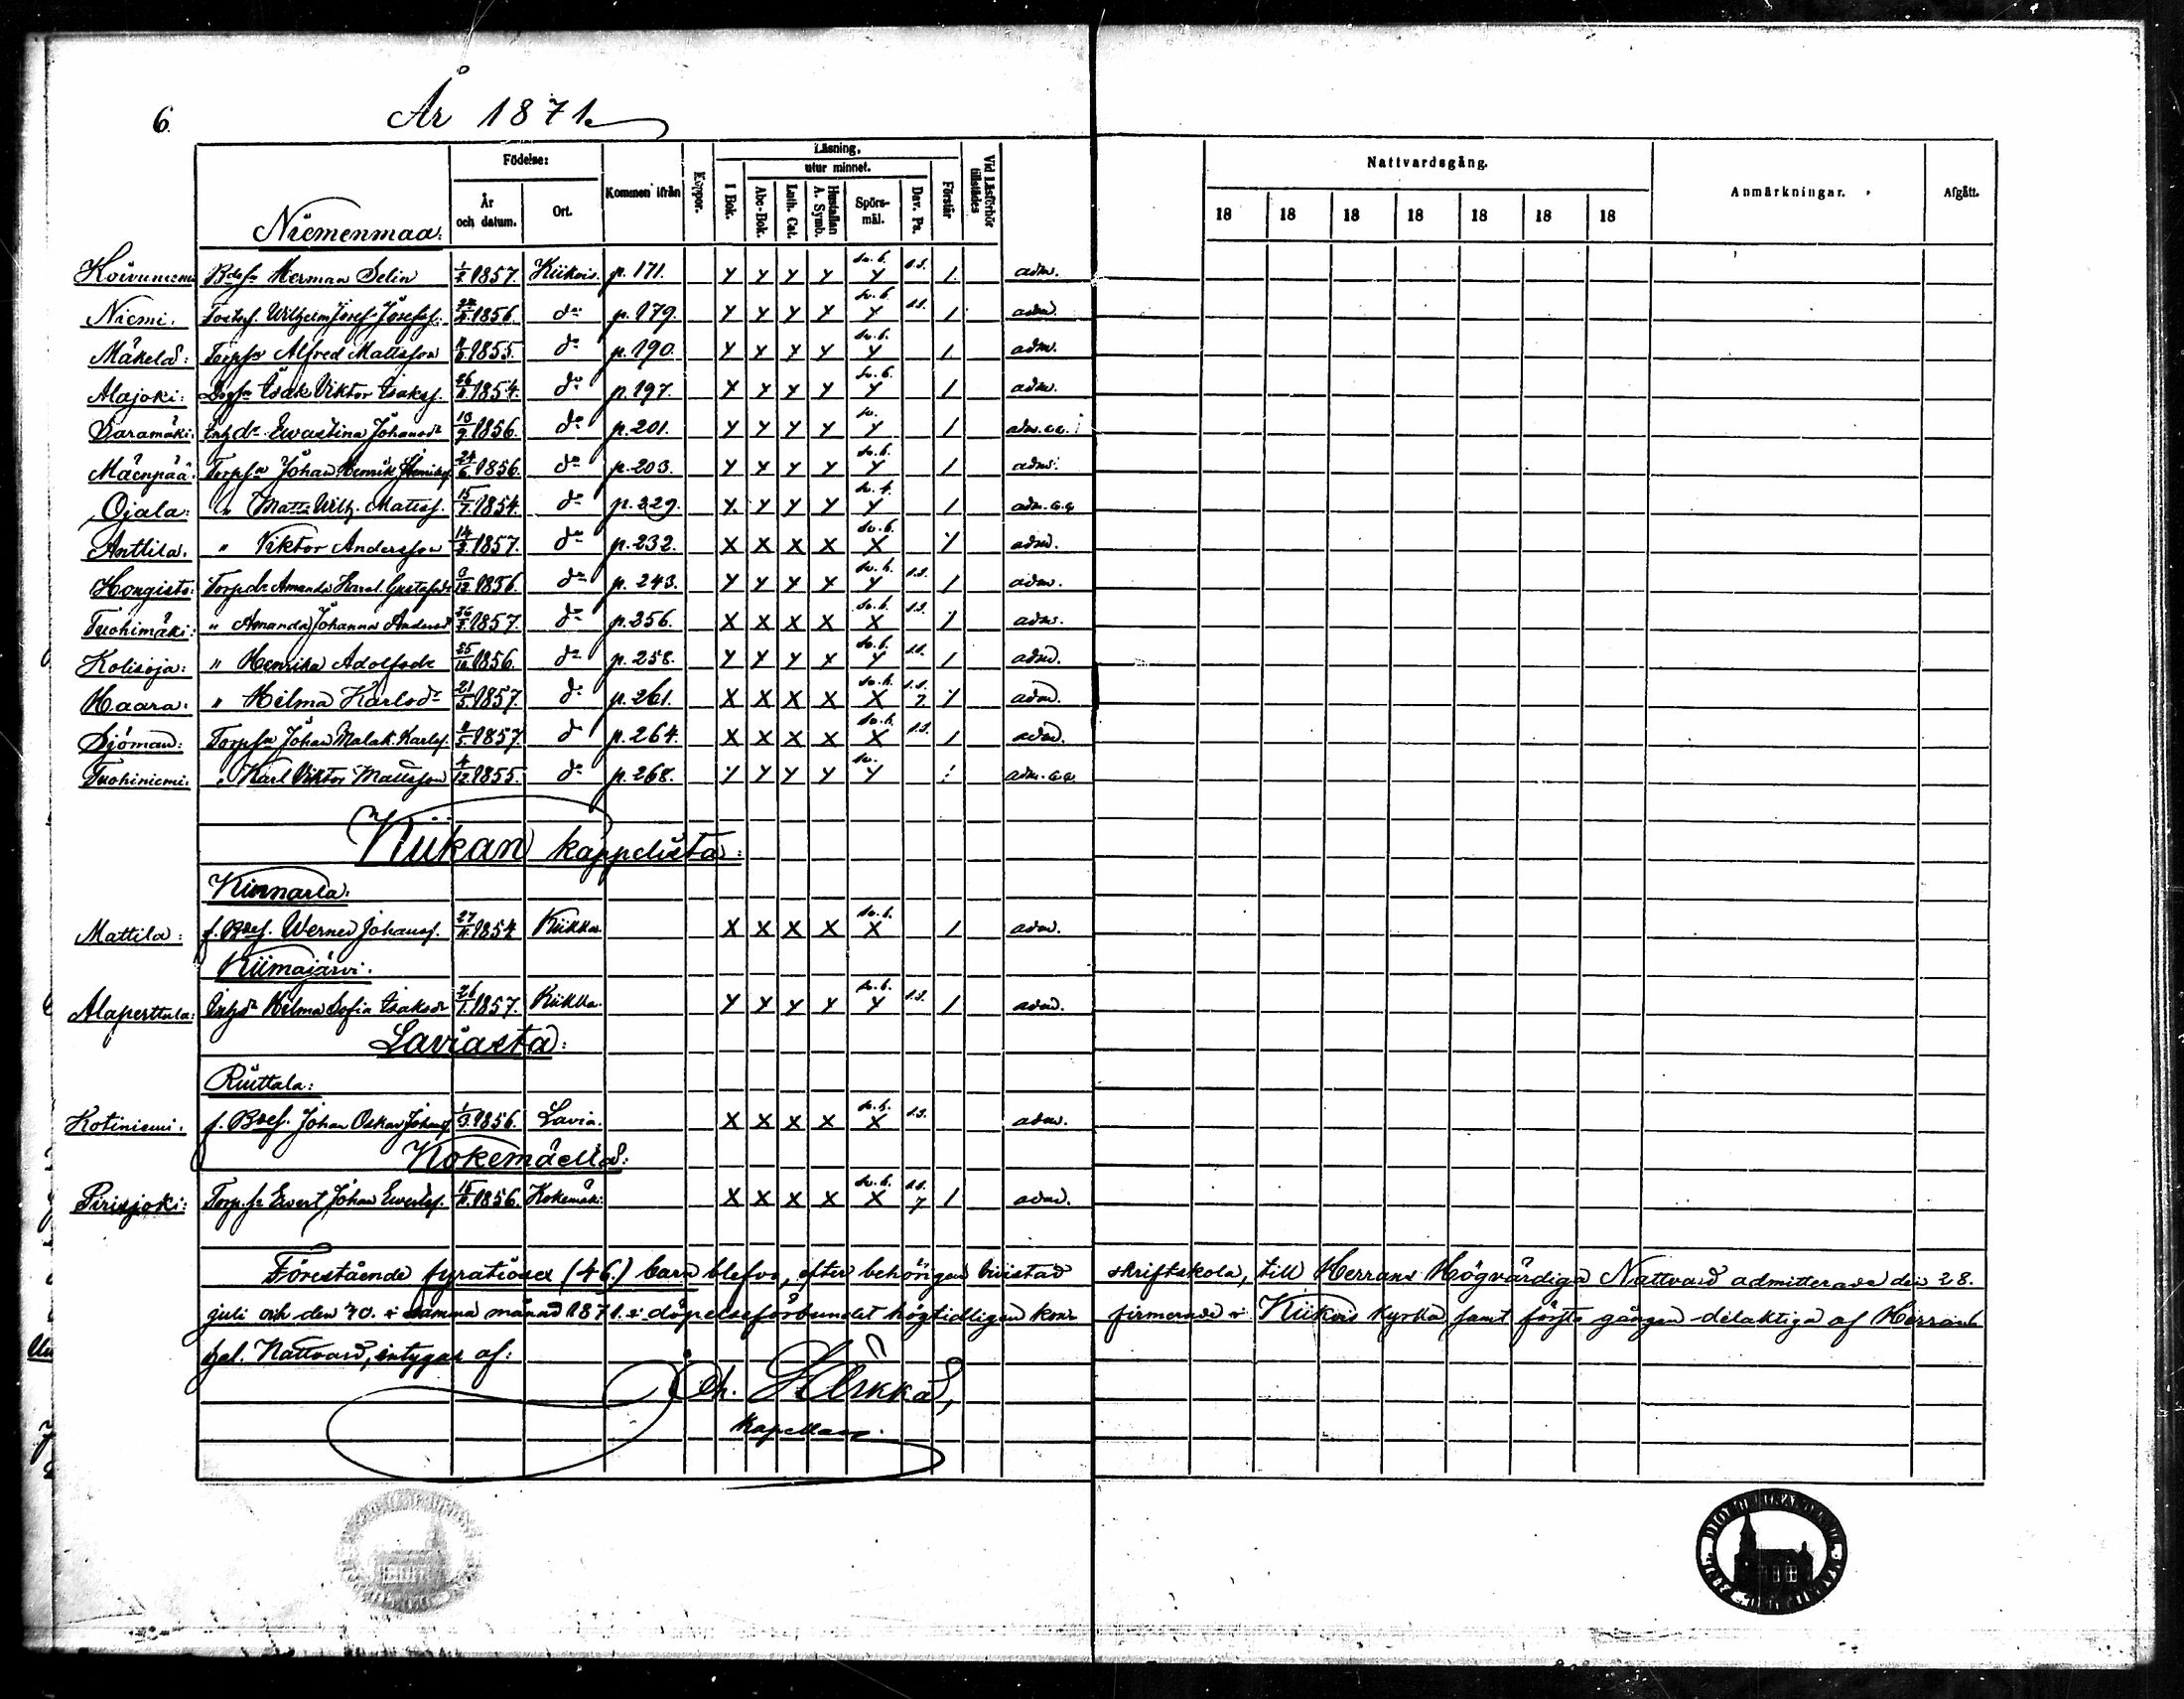 6.
År 1871.
Födelse:
Läsning,
utur minnet.
År och datum.
Ort.
Kommen ifrån
Koppor.
I Bok.
Abc-Bok.
Luth. Cat.
Hustaflan A. Symb.
Spörs-mål.
Dav. Ps.
Förstår
Vid Läsförhör tillstädes
Nattvardsgång.
18 18 18 18 18 18 18
Anmärkningar.
Afgått.
Niemenmaa:
Koivuniemi Herman Selin 1857. Kiikois. p. 171. y y y y y 1. adm.
Niemi. Wilhelm Josef Josefss. 1856. do p. 179. y y y y y 1 adm.
Mäkelä: Torpsn Alfred Mattsson 1855. do p. 190. y y y y y 1 adm.
Alajoki: Isak Viktor Isakss. 1854. do p. 197. y y y y y 1 adm.
Saramäki: Evastina Johansdr 10/9 1856. do p. 201. y y y y y 1 adm.
Mäenpää: Torpsn Johan Henrik Henrikss. 24/6 1856. do p. 203. y y y y y 1 adm.
Ojala: " Matts Wilh. Mattss. 1854. do p. 229. y y y y y 1 adm.
Anttila. " Viktor Andersson 1857. do p. 232. x x x x x 1 adm.
Hongisto: Torpdr Amanda Gustafsdr 1856. do p. 243. y y y y y 1 adm.
Tuohimäki: " Amanda Johanna Andersdr 1857. do p. 256. x x x x x 1 adm.
Kolisoja: " Henrika Adolfsdr 1856. do p. 258. y y y y y 1 adm.
Haara: " Hilma Karlsdr 21/5 1857. do p. 261. x x x x x 7 1 adm.
Sjöman: Torpsn Johan Malak. Karlss. 1857. do p. 264. x x x x x 1 adm.
Tuohiniemi: " Karl Viktor Mattsson 4/12 1855. do p. 268. y y y y y adm.
Kiikan kappelista:
Kinnarla:
Mattila: f. Werner Johanss. 27/11 1854 Kiikka. x x x x x 1 adm.
Kiimajärvi.
Alaperttula: Hilma Sofia Isaksdr 26/1 1857. Kiikka. y y y y y 1 adm.
Laviasta:
Riuttala:
Kotiniemi. f. Johan Oskar Johanss. 1856. Lavia. x x x x x adm.
Kokemäeltä:
Pirisjoki: Torp. sn Evert Johan Evertss. 1856. Kokemäki: x x x x x 7 1 adm.
Förestående fyratiosex (46.) barn blefvo, efter behörigen bivistad skriftskola, till Herrans Högvärdiga Nattvard admitterade den 28.
juli och den 30. i samma månad 1871. i döpelseförbundet högtidligen konfirmerade i Kiikois kyrka samt första gången delaktiga af Herrans
hel. Nattvard, intygar af:
Kapellan.